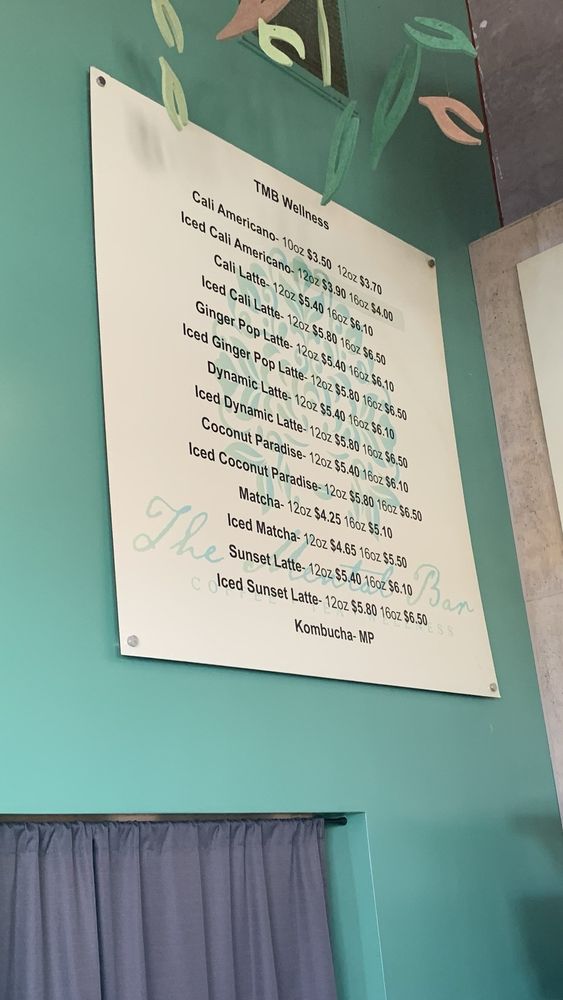 TMB Wellness
Cali Americano- 10oz $3.50 12oz $3.70
Iced Cali Americano- 12oz $3.90 16oz $4.00
Cali Latte- 12oz $5.40 16oz $6.10
Iced Cali Latte- 12oz $5.80 16oz $6.50
Ginger Pop Latte- 12oz $5.40 16oz $6.10
Iced Ginger Pop Latte- 12oz $5.80 16oz $6.50
Dynamic Latte- 12oz $5.40 16oz $6.10
Iced Dynamic Latte- 12oz $5.80 16oz $6.50
Coconut Paradise- 12oz $5.40 16oz $6.10
Iced Coconut Paradise- 12oz $5.80 16oz $6.50
Matcha- 12oz $4.25 16oz $5.10
Iced Matcha- 12oz $4.65 16oz $5.50
Sunset Latte- 12oz $5.40 16oz $6.10
Iced Sunset Latte- 12oz $5.80 16oz $6.50
Kombucha- MP
The Mental Bar